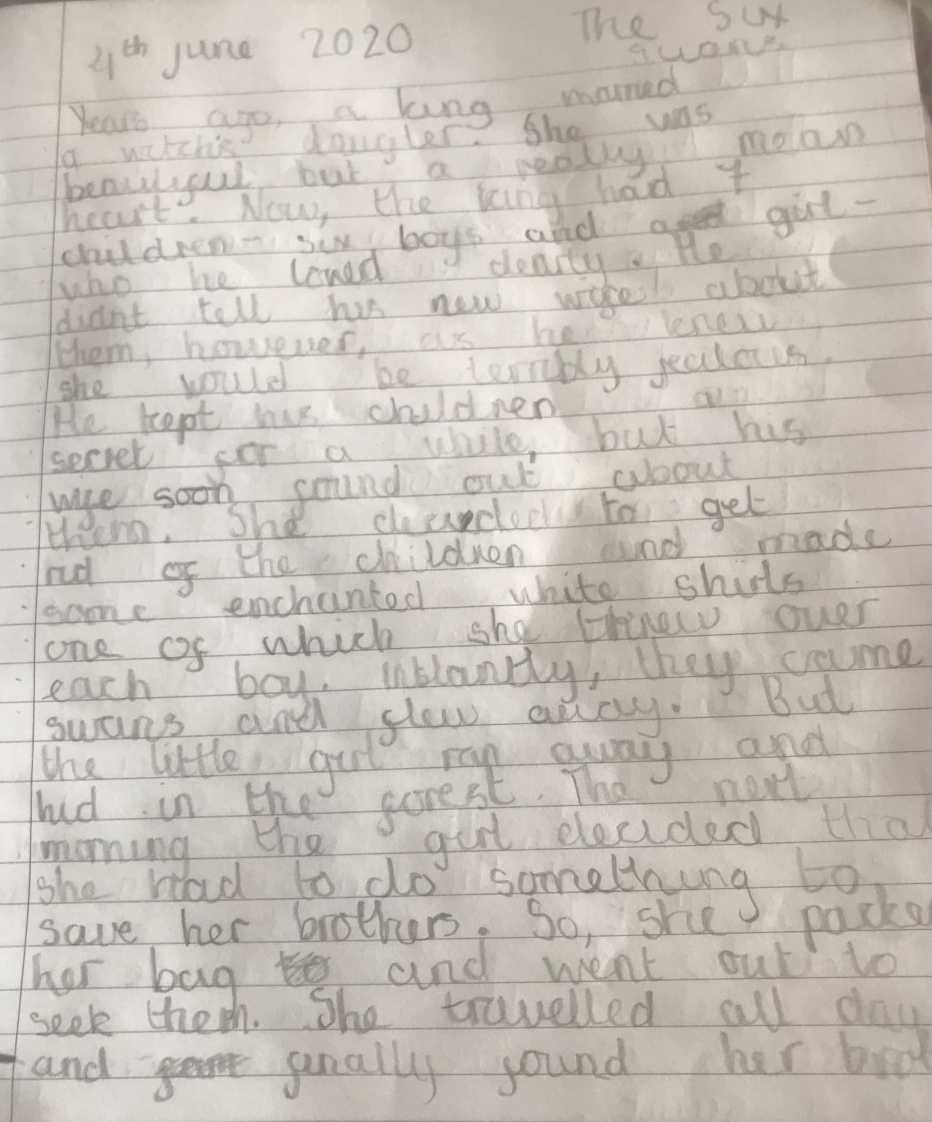 4th june 2020 The Six
swans
Years ago, a king married
a witch's daugter. She was
beautiful but a really mean
heart. Now, the king had 7
children - six boys and a girl -
who he loved dearly. He
didnt tell his new wife about
them, however, as he knew
she would be terribly jealous.
He kept his children a
secret for a while, but his
wife soon found out about
them. She decided to get
rid of the children and made
some enchanted white shirts
one of which she threw over
each boy. Instantly, they came
swans and flew away. But
the little girl ran away and
hid in the forest. The next
morning the girl decided that
she had to do something to
save her brothers. So, she packe
her bag and went out to
seek them. She travelled all day
and finally found her brot